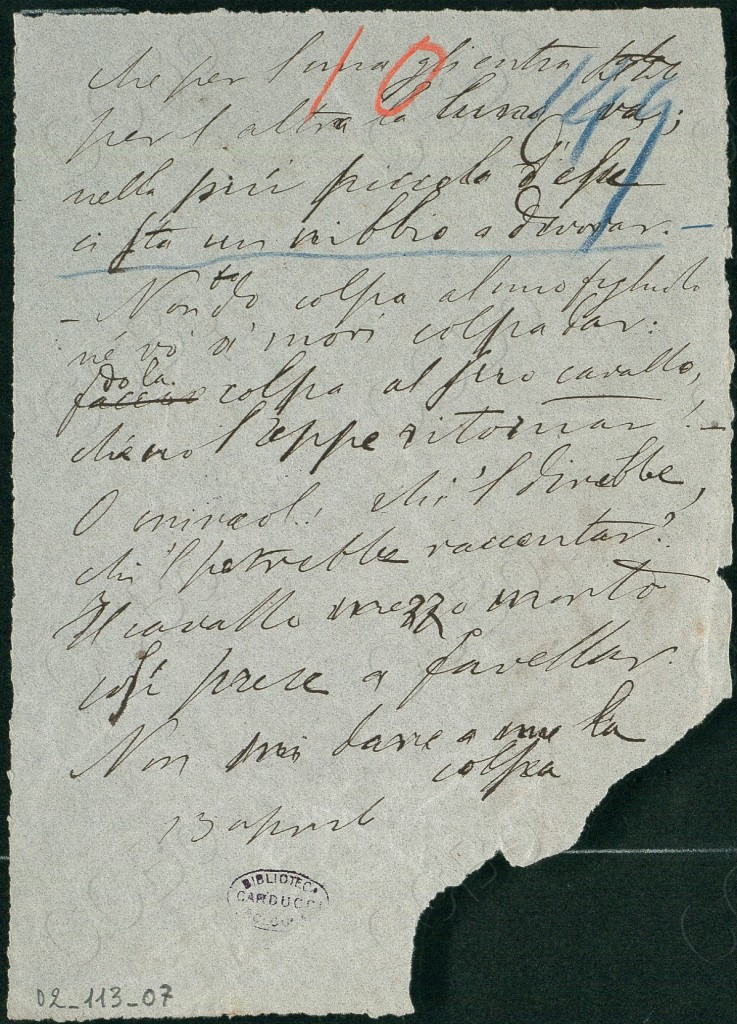 10
149
che per l'una gli entra
per l'altra la luna va;
nella più piccola d'esse
ci sta un nibbio a divorar. —
— Non do colpa al mio figliuolo
né vo' a' mori colpa dar:
do la
faccio colpa al fiero cavallo,
che no l'seppe ritornar! —
O miracol! chi 'l direbbe,
chi 'l potrebbe raccontar?
Il cavallo mezzo morto
così prese a favellar.
Non mi dare a me la
colpa
13 april
BIBLIOTECA
CARDUCCI
02_113_07